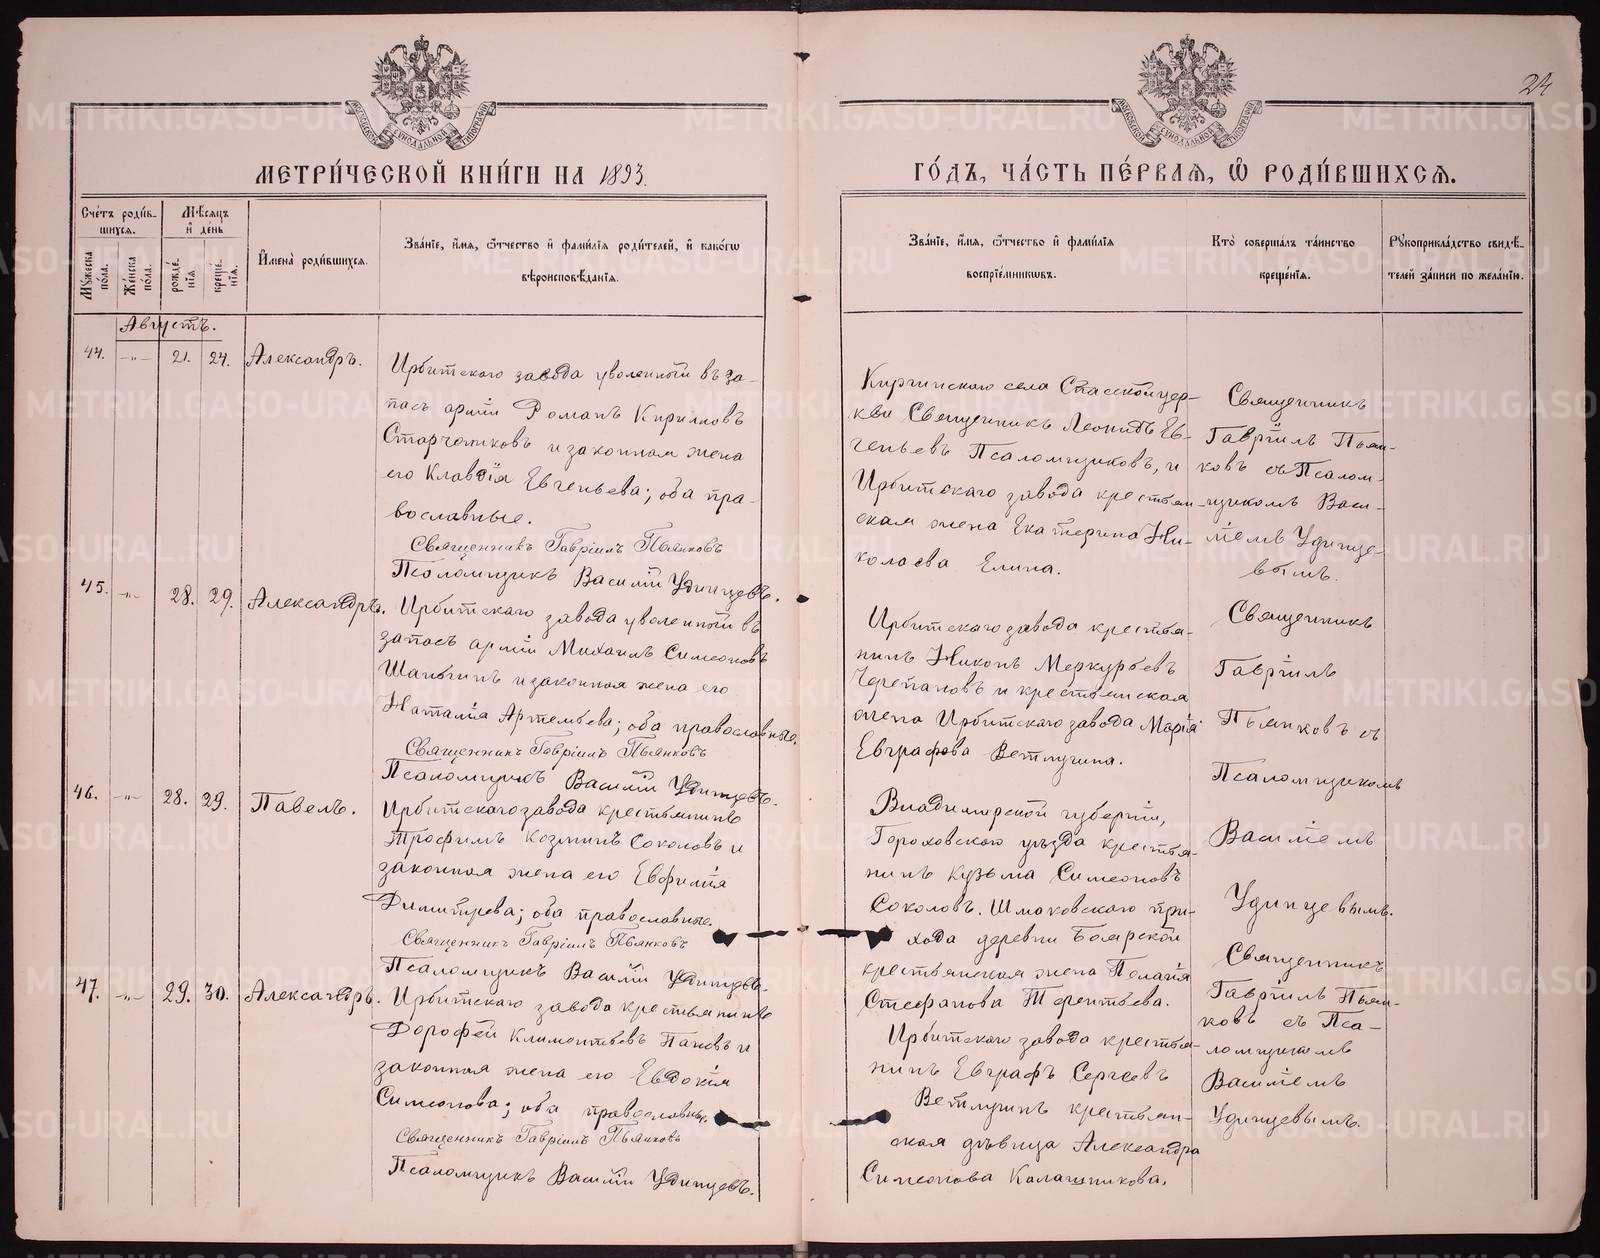 24
МЕТРИ́ЧЕСКОЙ КНИ́ГИ НА 1893.
ГО́ДЪ, ЧА́СТЬ ПЕ́РВАЯ, Ѽ РОДИ́ВШИХСЯ.
Сче́тъ роди́в-
шихся.
Мꙋжеска по́ла.
Же́нска по́ла.
Мѣ́сяцъ
и де́нь
рожде́-
нїя.
креще́-
нїя.
И҆мена̀ роди́вшихся.
Зва́нїе, и҆́мя, ѻ҆́тчество и҆ фами́лїя роди́телей, и҆ како́гѡ
вѣроисповѣ́данїя.
Зва́нїе, и҆́мя, ѻ҆́тчество и҆ фами́лїя
воспрїе́мникѡвъ.
Кто̀ соверша́лъ та́инство
креще́нїя.
Рꙋкоприкла́дство свидѣ́-
телей за́писи по жела́нїю.
Августъ.
44. -"- 21. 24. Александръ.
Ирбитскаго завода уволенный въ за-
пасъ арміи Романъ Кириловъ
Старчониковъ и законная жена
его Клавдія Евгеньева; оба пра-
вославные.
Священникъ Гавріилъ Пьянковъ
Псаломщикъ Василій Удинцевъ.
Киргинскаго села Спасской цер-
кви Священникъ Леонидъ Ев-
геньевъ Псаломщиковъ, и
Ирбитскаго завода крестьян-
ская жена Екатерина Ни-
колаева Елина.
Священникъ
Гавріилъ Пьян-
ковъ съ Псалом-
щикомъ Васи-
ліемъ Удинце-
вымъ.
45. -"- 28. 29. Александръ.
Ирбитскаго завода уволенный въ
запасъ арміи Михаилъ Симеоновъ
Шаньгинъ и законная жена его
Наталія Артемьева; оба православные.
Священникъ Гавріилъ Пьянковъ
Псаломщикъ Василій Удинцевъ.
Ирбитскаго завода крестья-
нинъ Никонъ Меркурьевъ
Черепановъ и крестьянская
жена Ирбитскаго завода Марія
Евграфова Ветлугина.
Священникъ
Гавріилъ
Пьянковъ съ
Псаломщикомъ
Василіемъ
Удинцевымъ.
46. -"- 28. 29. Павелъ.
Ирбитскаго завода крестьянинъ
Трофимъ Козминъ Соколовъ и
законная жена его Евфимія
Димитріева; оба православные.
Священникъ Гавріилъ Пьянковъ
Псаломщикъ Василій Удинцевъ.
Владимірской губерніи,
Гороховскаго уѣзда крестья-
нинъ Кузьма Симеоновъ
Соколовъ. Шмаковскаго при-
хода деревни Боярской
крестьянская жена Пелагія
Стефанова Терентьева.
Священникъ
Гавріилъ Пьян-
ковъ съ Пса-
ломщикомъ
Василіемъ
Удинцевымъ.
47. -"- 29. 30. Александръ.
Ирбитскаго завода крестьянинъ
Дорофей Климентьевъ Пановъ и
законная жена его Евдокія
Симеонова; оба православные.
Священникъ Гавріилъ Пьянковъ
Псаломщикъ Василій Удинцевъ.
Ирбитскаго завода крестья-
нинъ Евграфъ Сергеевъ
Ветлугинъ крестьян-
ская дѣвица Александра
Симеонова Калашникова.
METRIKI.GASO-URAL.RU